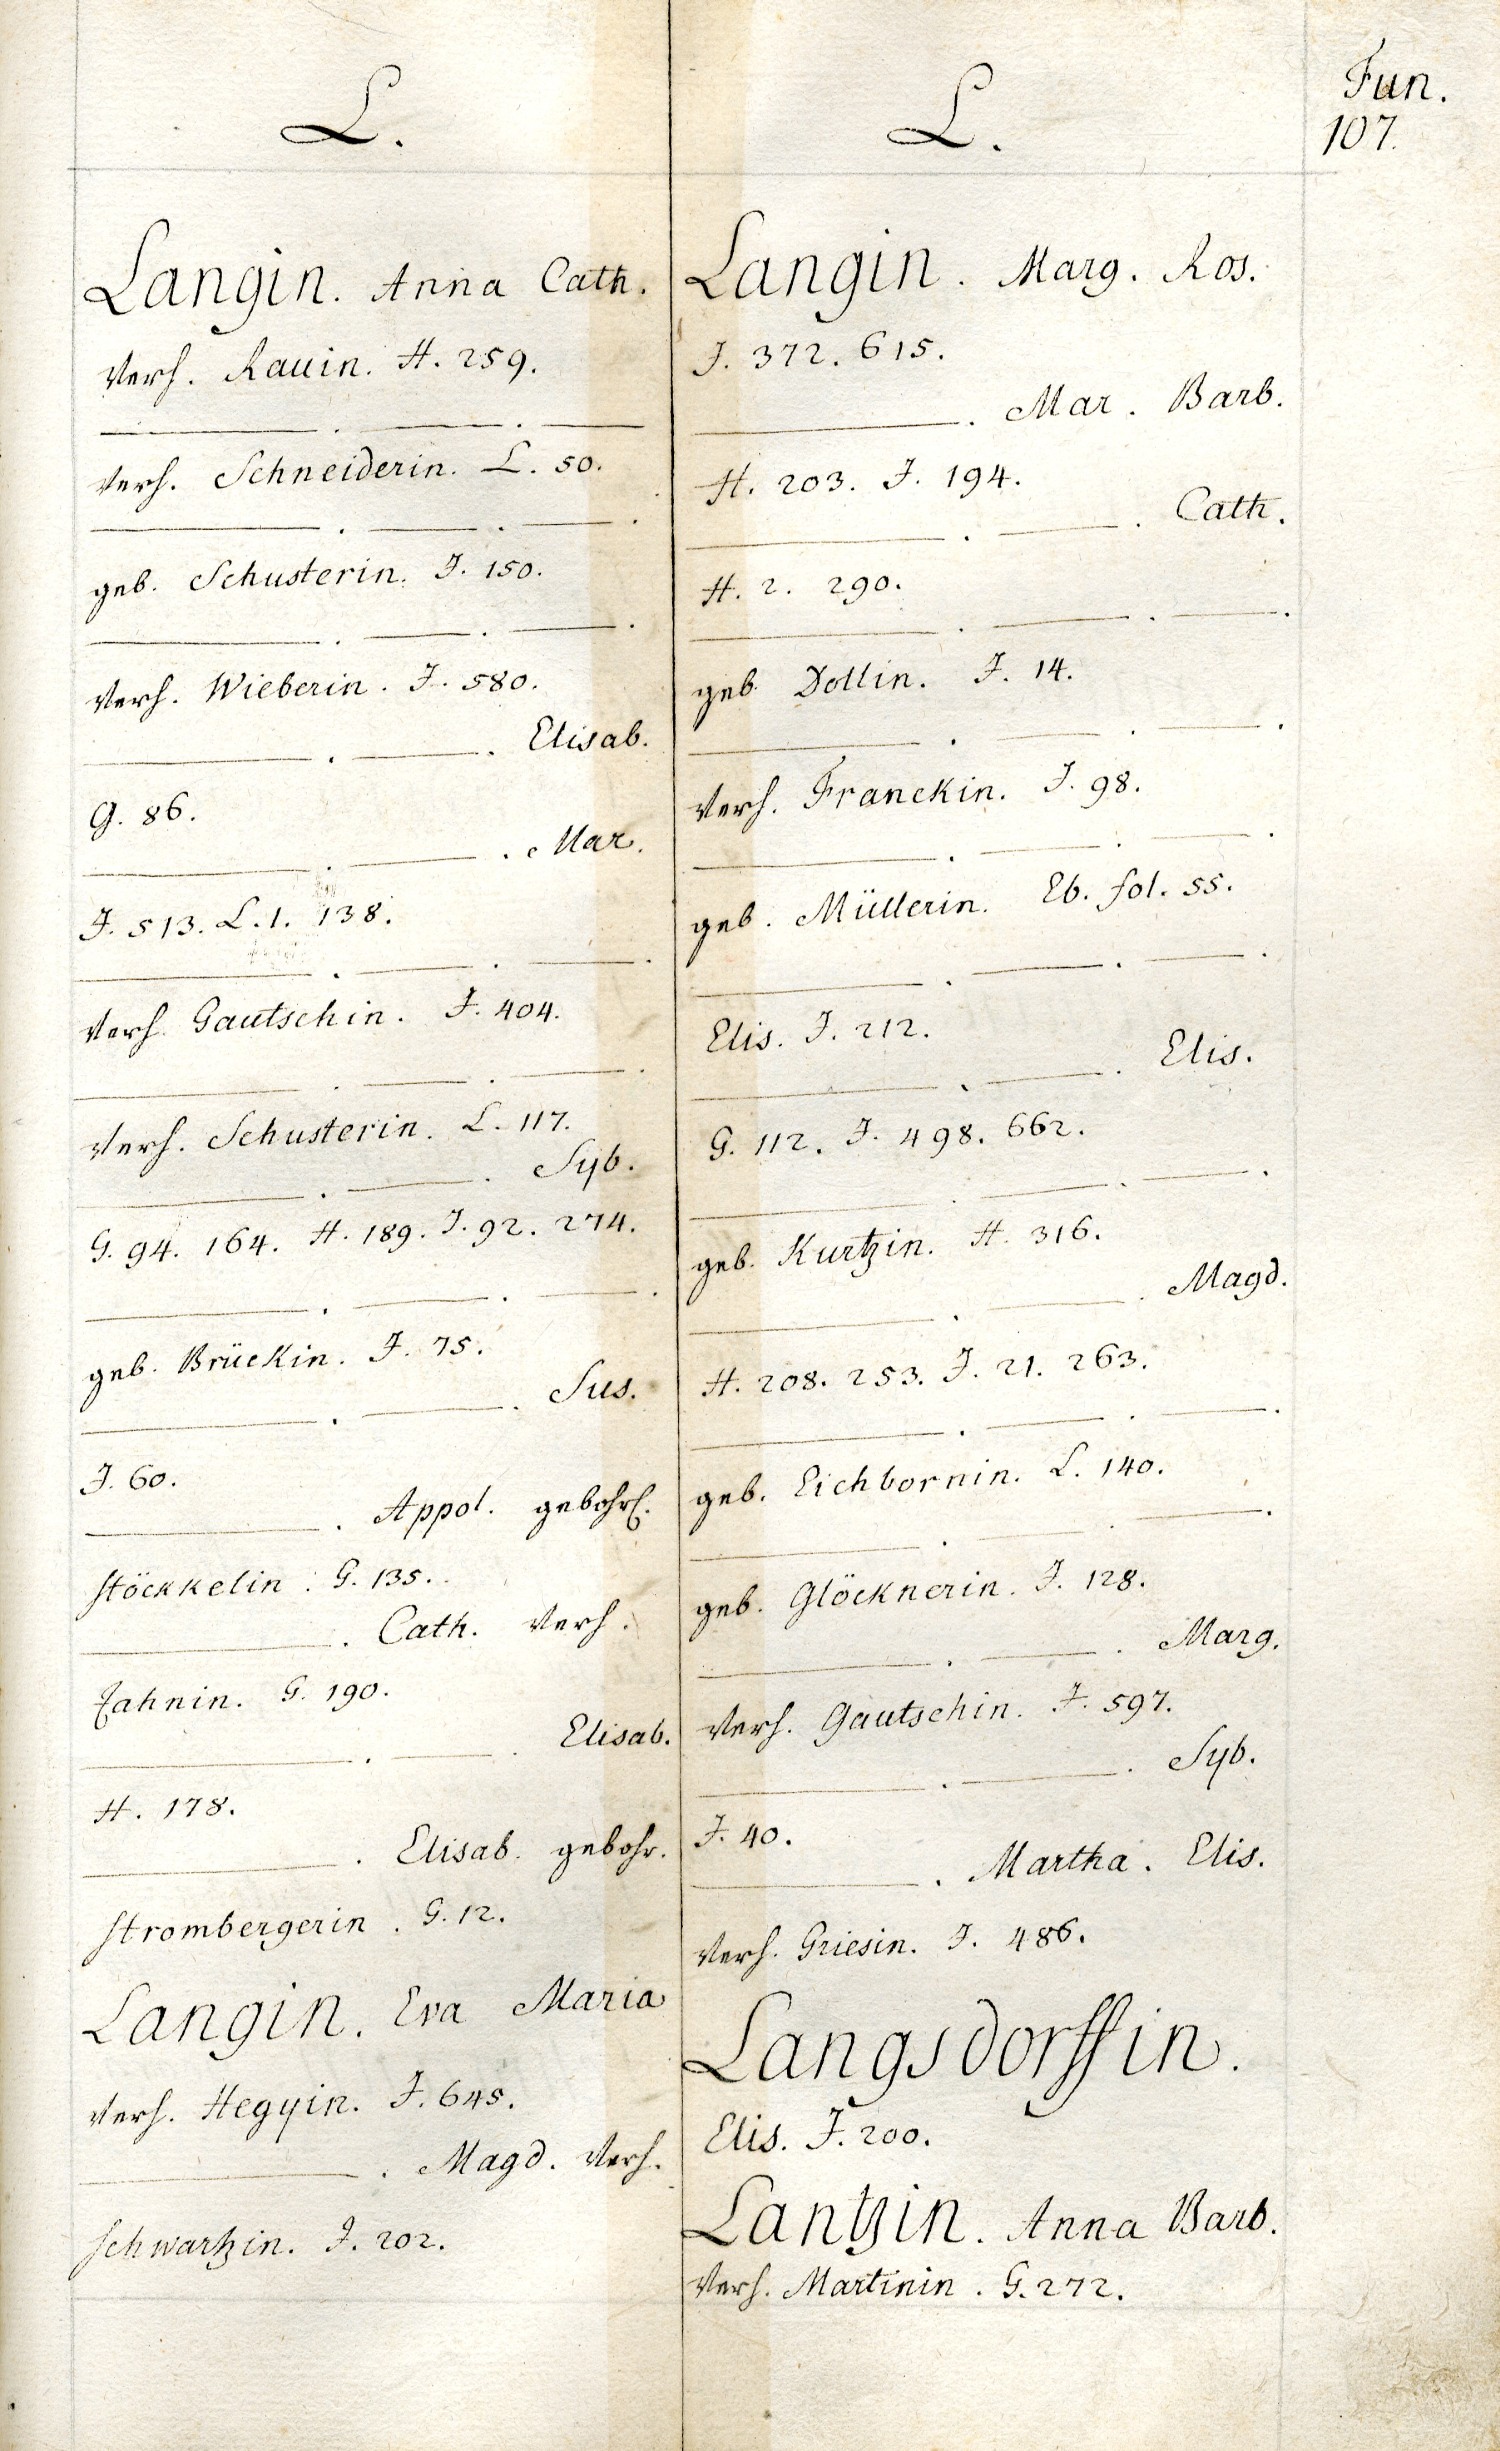 L.
Langin. Anna Cath.
verh. Rauin. H. 259.
———. ———. ———
verh. Schneiderin. L. 50.
———. ———. ———.
geb. Schusterin. J. 150.
———. ———. ———.
verh. Wieberin. J. 580.
———. ———. Elisab.
G. 86.
———. ———. Mar.
J. 513. L. 1. 138.
———. ———. ———.
verh. Gautschin. J. 404.
———. ———. ———.
verh. Schusterin. L. 117.
———. ———. Syb.
G. 94. 164. H. 189. J. 92. 274.
———. ———. ———.
geb. Brückin. J. 75.
———. ———. Sus.
J. 60.
———. Appol. gebohrl.
Stöckkelin. G. 135.
———. Cath. verh.
Zahnin. G. 190.
———. ———. Elisab.
H. 178.
———. Elisab. gebohr.
Strombergerin. G. 12.
Langin. Eva Maria
verh. Hegyin. J. 645.
———. Magd. verh.
Schwartzin. J. 202.
L.
Langin. Marg. Ros.
J. 372. 615.
———. Mar. Barb.
H. 203. J. 194.
———. ———. Cath.
H. 2. 290.
———. ———. ———.
geb. Dollin. J. 14.
———. ———. ———.
verh. Franckin. J. 98.
———. ———. ———.
geb. Müllerin. Eb. fol. 55.
———. ———. ———.
Elis. J. 212.
———. ———. Elis.
G. 112. J. 498. 662.
———. ———. ———.
geb. Kurtzin. H. 316.
———. ———. Magd.
H. 208. 253. J. 21. 263.
———. ———. ———.
geb. Eichbornin. L. 140.
———. ———. ———.
geb. Glöcknerin. J. 128.
———. ———. Marg.
verh. Gautschin. J. 597.
———. ———. Syb.
J. 40.
———. Martha. Elis.
verh. Griesin. J. 486.
Langsdorffin.
Elis. J. 200.
Lantzin. Anna Barb.
verh. Martinin. G. 272.
Fun.
107.